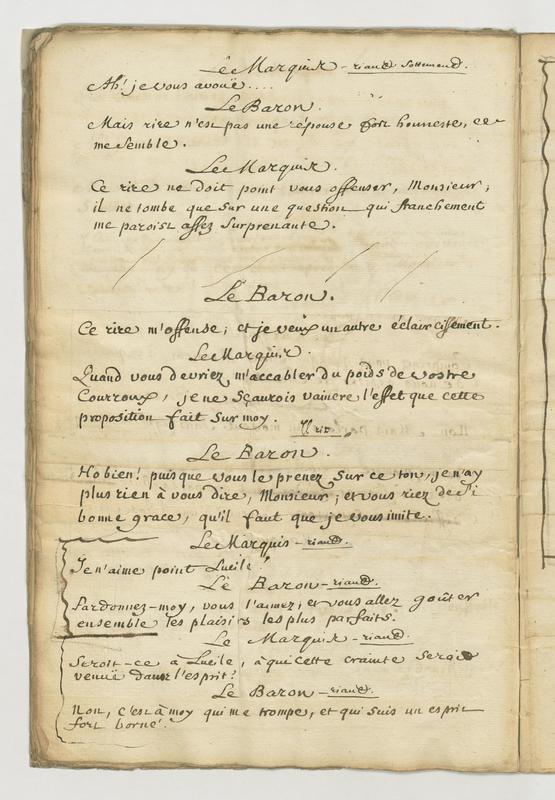 Le Marquis - riant sottement.
Ah! je vous avoüe....
Le Baron.
Mais rire n'est pas une réponse fort honneste, ce
me semble.
Le Marquis.
Ce rire ne doit point vous offenser, Monsieur;
il ne tombe que sur une question qui franchement
me paroist assez surprenante.
Le Baron.
Ce rire m'offense; et je veux un autre éclaircissement.
Le Marquis.
Quand vous devriez m'accabler du poids de vostre
Courroux, je ne sçaurois vaincre l'effet que cette
proposition fait sur moy. Il rit.
Le Baron.
Ho bien! puisque vous le prenez sur ce ton, je n'ay
plus rien à vous dire, Monsieur; et vous riez de si
bonne grace, qu'il faut que je vous imite.
Le Marquis - riant.
Je n'aime point Lucile!
Le Baron - riant.
Pardonnez-moy, vous l'aimez; et vous allez goûter
ensemble les plaisirs les plus parfaits.
Le Marquis - riant.
Seroit-ce à Lucile, à qui cette crainte seroit
venüe dans l'esprit?
Le Baron - riant.
Non, c'est à moy qui me trompe, et qui suis un esprit
fort borné!